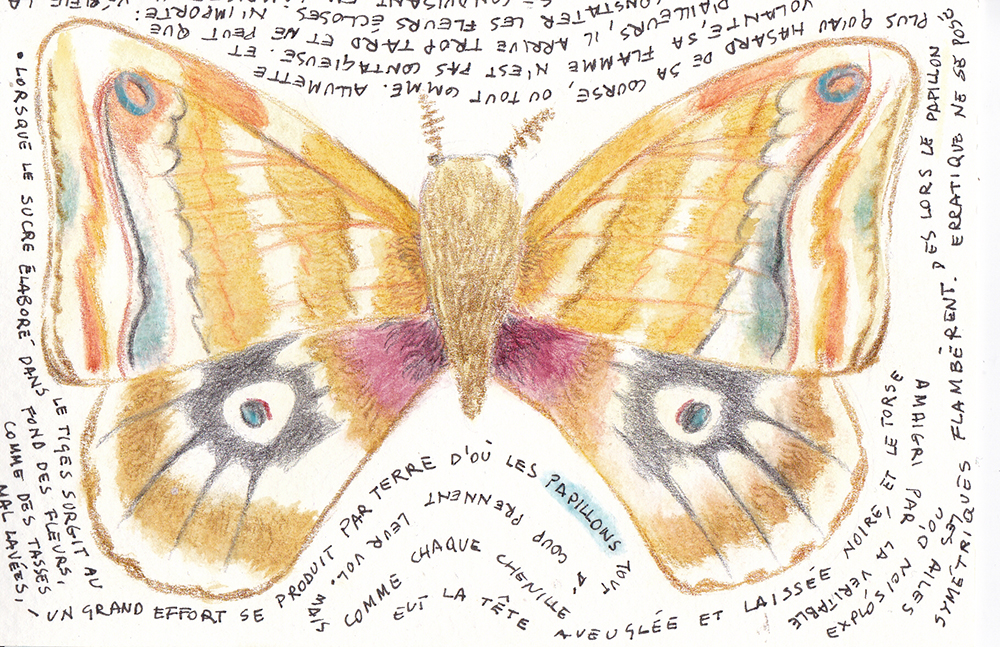 • LORSQUE LE SUCRE ÉLABORÉ DANS LE TIGES SURGIT AU
FOND DES FLEURS,
COMME DES TASSES
MAL LAVÉES, –
UN GRAND EFFORT SE PRODUIT PAR TERRE D'OÙ LES PAPILLONS TOUT
À COUP PRENNENT LEUR VOL. MAIS
COMME CHAQUE CHENILLE
EUT LA TÊTE AVEUGLÉE ET LAISSÉE NOIRE, ET LE TORSE
AMAIGRI PAR LA VÉRITABLE
EXPLOSION D'OÙ
LES AILES
SYMÉTRIQUES FLAMBÈRENT. DÈS LORS LE PAPILLON
ERRATIQUE NE SE POSE
PLUS QU'AU HASARD DE SA COURSE, OU TOUT COMME. ALLUMETTE
VOLANTE, SA FLAMME N'EST PAS CONTAGIEUSE. ET
D'AILLEURS, IL ARRIVE TROP TARD ET NE PEUT QUE
CONSTATER LES FLEURS ÉCLOSES. N'IMPORTE :
SE CONDUISANT EN VÉRIFIE LA